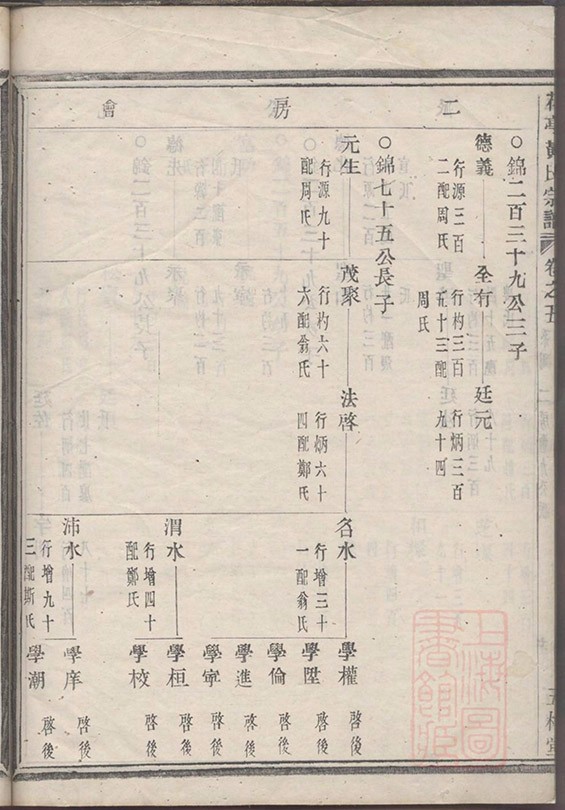 宗譜
卷之五
二房會
○錦二百三十九公三子
德義
行源三百
二配周氏
全有
行杓三百
九十三配
周氏
廷元
行炳三百
九十四
○錦七十五公長子
元生
行源九十
配周氏
茂聚
行杓六十
六配翁氏
法啓
行炳六十
四配鄭氏
名水
行增三十
一配翁氏
學權 啓後
學陞 啓後
學倫 啓後
學進 啓後
學寧 啓後
學桓 啓後
學校 啓後
渭水
行增四十
配鄭氏
沛水
行增九十
三配斯氏
學庠 啓後
學潮 啓後
上海圖
書館藏